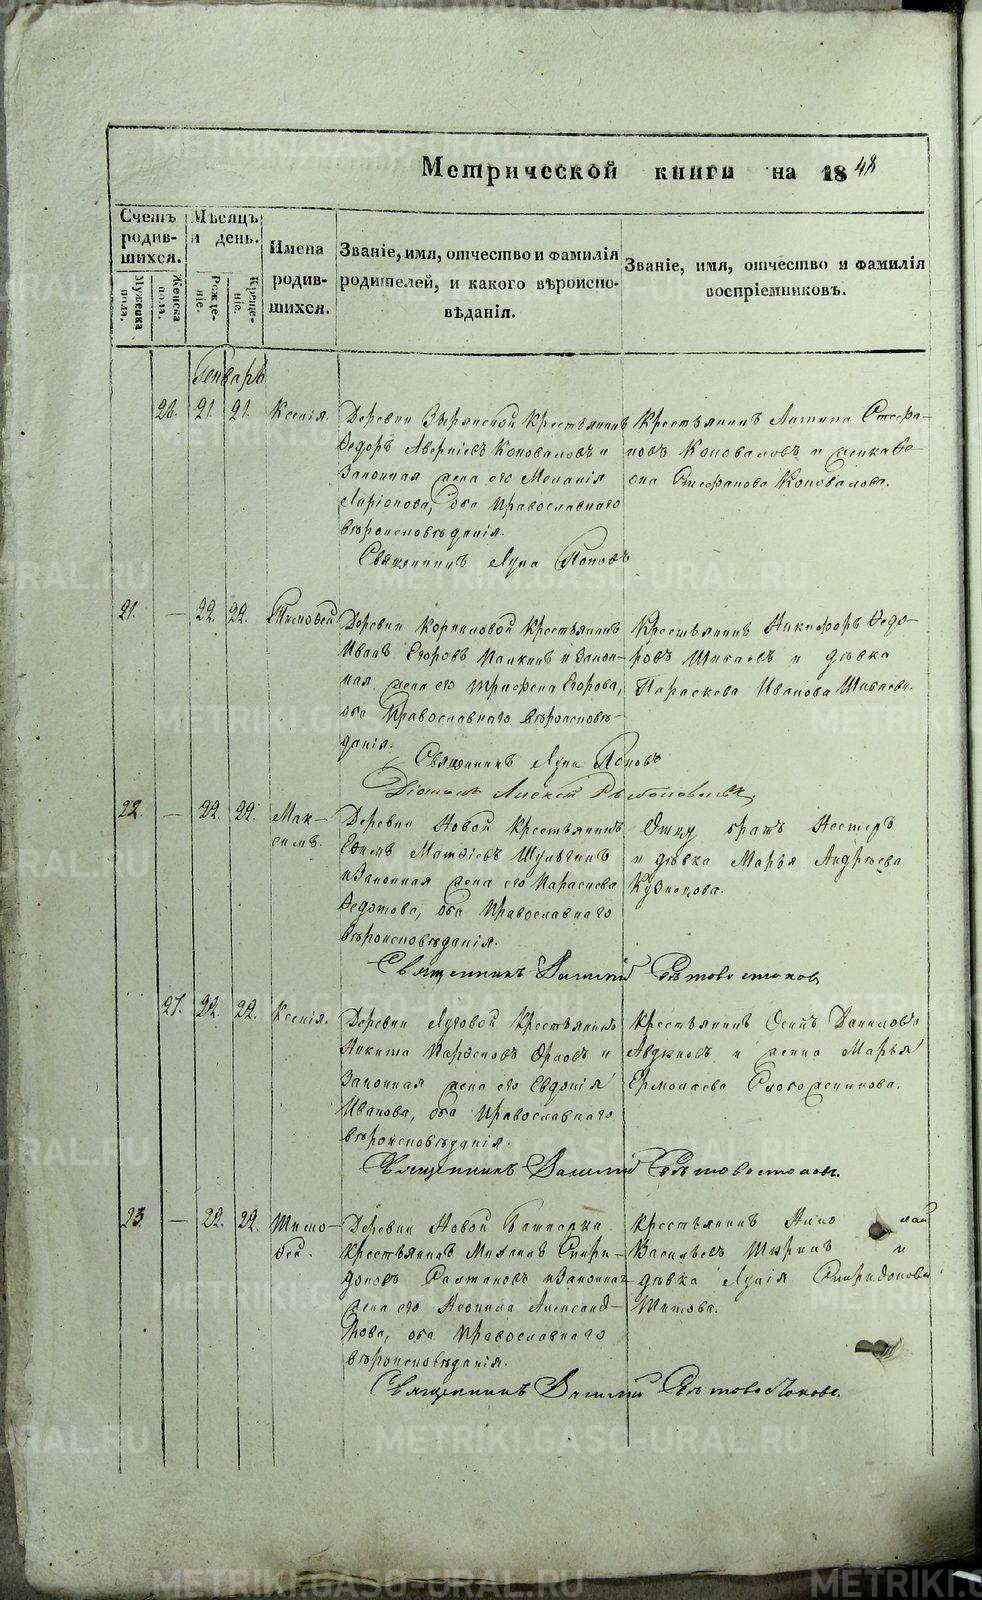 Метрической книги на 1848
Счетъ родив-шихся.
Мужеска пола.
Женска пола.
Мѣсяцъ и день.
Рожде-нiе.
Креще-нiе.
Имена родив-шихся.
Званiе, имя, отчество и фамилiя
родителей, и какого вѣроиспо-
вѣданiя.
Званiе, имя, отчество и фамилiя
воспрiемниковъ.
Генварь
21. 21. Ксенiя.
Деревни Зырянской Крестьянинъ
Ѳедоръ Аверкiевъ Коноваловъ и
Законная жена его Меланiя
Ларiонова, оба Православнаго
вѣроисповѣданiя.
Священникъ Лука Поповъ
Крестьянинъ Антипа Стефа-
новъ Коноваловъ и женка Ѳе-
Стефанова Коновалова.
21. — 22. 22. Тимоѳей
Деревни Корниловой Крестьянинъ
Иванъ Егоровъ Палкинъ и Закон-
ная жена его Трифена Егорова,
оба Православнаго вѣроисповѣ-
данiя.
Священникъ Лука Поповъ
Крестьянинъ Никифоръ Ѳедо-
ровъ и дѣвка
Параскева Иванова
22. — 22. 22. Мак-
симъ.
Деревни Новой Крестьянинъ
Ефимъ Матѳiевъ Шульгинъ
и Законная жена его Параскева
Ѳедотова, оба Православнаго
вѣроисповѣданiя.
Священникъ Василiй
Отцу братъ Нестеръ
и дѣвка Марья Андрѣева
Кузнецова.
27. 22. 22. Ксенiя.
Деревни Луговой Крестьянинъ
Никита Парѳеновъ Орловъ и
Законная жена его Евдокiя
Иванова, оба Православнаго
вѣроисповѣданiя.
Священникъ Василiй
Крестьянинъ Осипъ Даниловъ
и женка Марья
Ермолаева
23. — 22. 22. Тимо-
ѳей.
Деревни Новой Башкарки
Крестьянинъ Михаилъ Спири-
доновъ Салтановъ и Законная
жена его Неонила Александ-
рова, оба Православнаго
вѣроисповѣданiя.
Священникъ Василiй
Крестьянинъ Николай
Васильевъ и
дѣвка Лукiя Спиридонова
Титова.
METRIKI.GASO-URAL.RU